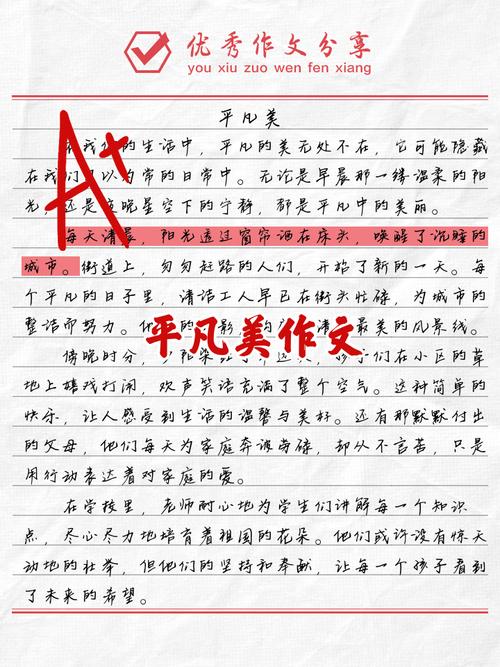 优秀作文分享
you xiu zuo wen fen xiang
A+
平凡美
在我们的生活中，平凡的美无处不在，它可能隐藏
在我们习以为常的日常中。无论是早晨那一缕温柔的阳
光，还是夜晚星空下的宁静，都是平凡中的美丽。
每天清晨，阳光透过窗帘洒在床头，唤醒了沉睡的
城市。街道上，匆匆赶路的人们，开始了新的一天。每
个平凡的日子里，清洁工人早已在街头忙碌，为城市的
整洁而努力。他们的身影，清 最美的风景线。
平凡美作文
傍晚时分，夕阳染红了 ，孩子们在小区的草
地上嬉戏打闹，欢声笑语充满了整个空气。这种简单的
快乐，让人感受到生活的温馨与美好。还有那默默付出
的父母，他们每天为家庭奔波劳碌，却从不言苦，只是
用行动表达着对家庭的爱。
在学校里，老师耐心地为学生们讲解每一个知识
点，尽心尽力地培育着祖国的花朵。他们或许没有惊天
动地的壮举，但他们的坚持和奉献，让每一个孩子看到
了未来的希望。